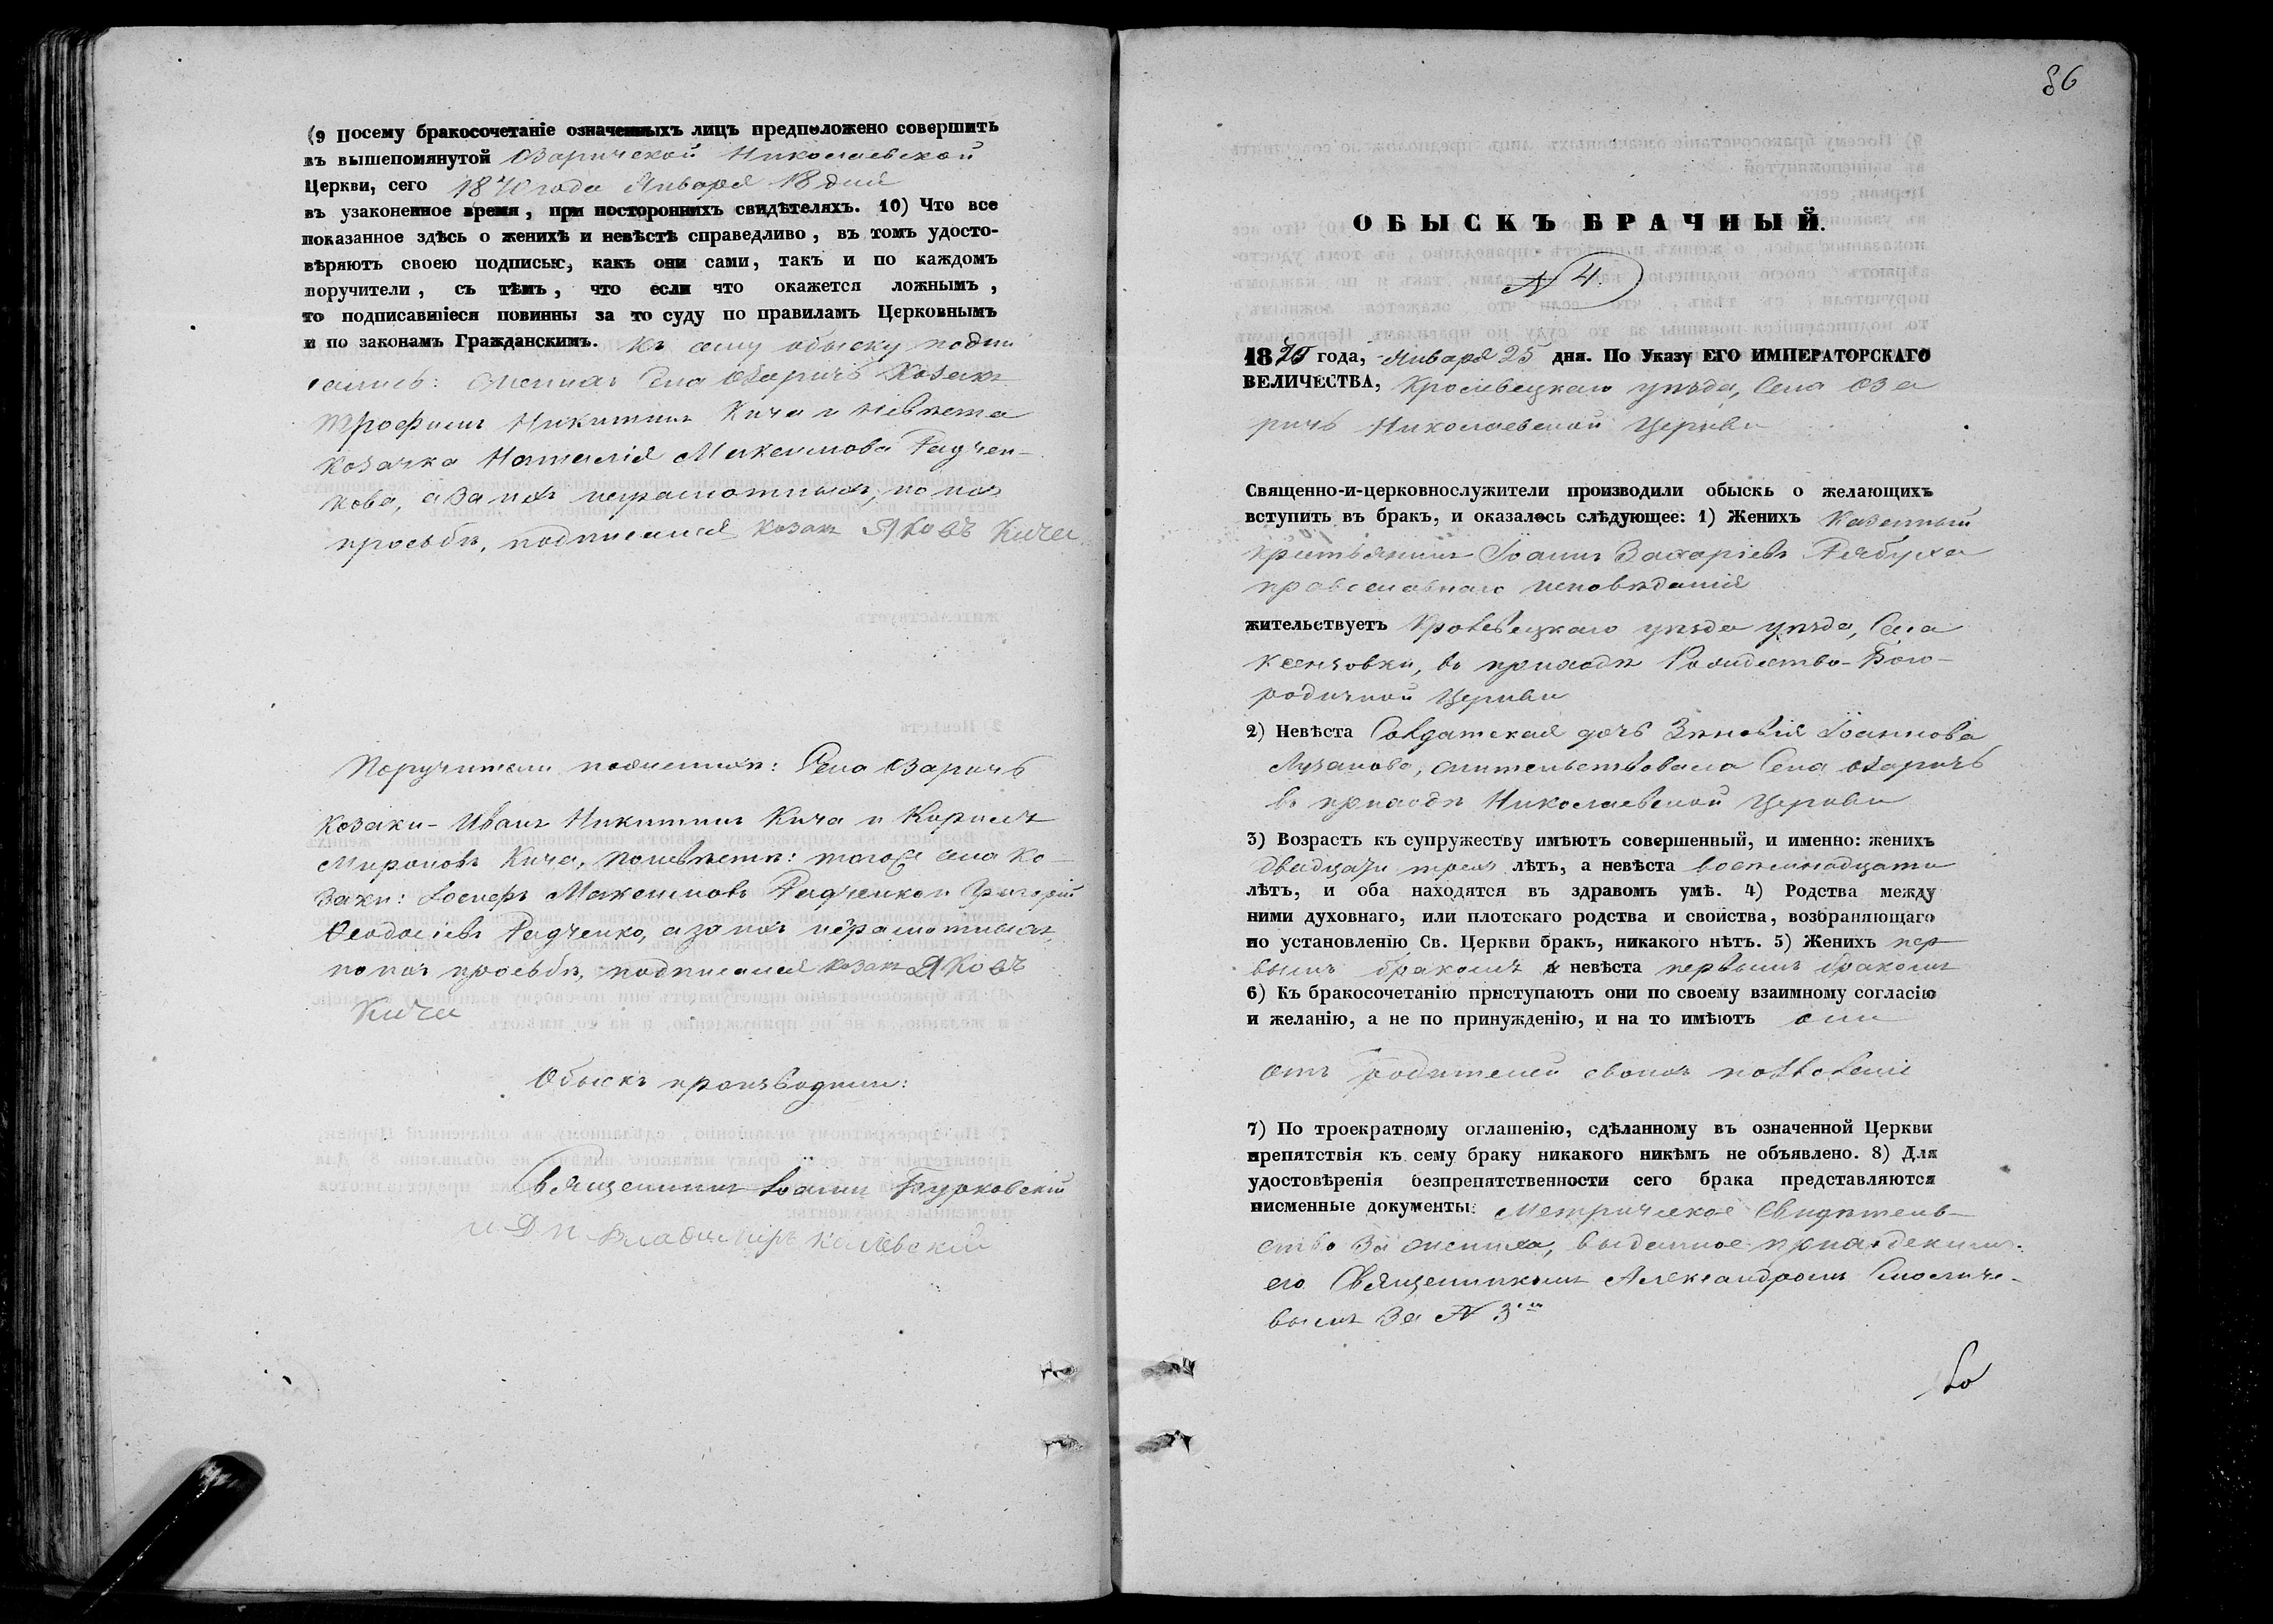 (9 Посему бракосочетаніе означенныхъ лицъ предположено совершить
въ вышепомянутой Озаричской Николаевской
Церкви, сего 1870 года Января 18 дня
въ узаконенное время, при постороннихъ свидѣтеляхъ. 10) Что все
показанное здѣсь о женихѣ и невѣстѣ справедливо, въ томъ удосто-
вѣряютъ своею подписью, какъ они сами, такъ и по каждомъ
поручители, съ тѣмъ, что если что окажется ложнымъ,
то подписавшіеся повинны за то суду по правиламъ Церковнымъ
и по законамъ Гражданскимъ. Къ сему обыску подпи
сались: женихъ Села Озаричъ Козакъ
Трофимъ Никитинъ Кича и невѣста
козачка Наталія Максимова Радчен-
кова, а за нихъ неграмотныхъ, по ихъ
просьбѣ, подписался козакъ Яковъ Кича
Поручители по женихѣ: Села Озаричъ
Козаки - Иванъ Никитинъ Кича и Кирилъ
Мироновъ Кича, по невѣстѣ: тогоже села Ко-
заки: Іосифъ Максимовъ Радченко и Григорій
Феодосіевъ Радченко, а за нихъ неграмотныхъ,
по ихъ просьбѣ, подписался козакъ Яковъ
Кича
Обыскъ производили:
Священникъ Іоаннъ Турковскій
и Д П Владимиръ
86
ОБЫСКЪ БРАЧНЫЙ.
N 4.
1870 года, Января 25 дня. По Указу ЕГО ИМПЕРАТОРСКАГО
ВЕЛИЧЕСТВА, Кролевецкаго уѣзда, Села Оза
ричъ Николаевской Церкви
Священно-и-церковнослужители производили обыскъ о желающихъ
вступить въ бракъ, и оказалось слѣдующее: 1) Женихъ Казенный
крестьянинъ Іоаннъ Захаріевъ Рябуха
православнаго исповѣданія
жительствуетъ Кролевецкаго уѣзда уѣзда, Села
Ксензовки, въ приходѣ Рождество-Бого-
родичной Церкви
2) Невѣста Солдатская дочь Зѣновія Іоаннова
Лузанова, жительствовала Села Озаричъ
въ приходѣ Николаевской Церкви
3) Возрастъ къ супружеству имѣютъ совершенный, и именно: женихъ
двадцати трехъ лѣтъ, а невѣста восемнадцати
лѣтъ, и оба находятся въ здравомъ умѣ. 4) Родства между
ними духовнаго, или плотскаго родства и свойства, возбраняющаго
по установленію Св. Церкви бракъ, никакого нѣтъ. 5) Женихъ пер-
вымъ бракомъ а невѣста первымъ бракомъ
6) Къ бракосочетанію приступаютъ они по своему взаимному согласію
и желанію, а не по принужденію, и на то имѣютъ они
отъ родителей своихъ позволеніе
7) По троекратному оглашенію, сдѣланному въ означенной Церкви
препятствія къ сему браку никакого никѣмъ не объявлено. 8) Для
удостовѣренія безпрепятственности сего брака представляются
писменные документы: Метрическое Свидѣтель-
ство за жениха, выданное приходскимъ
его Священникомъ Александромъ
вымъ за N 3мъ